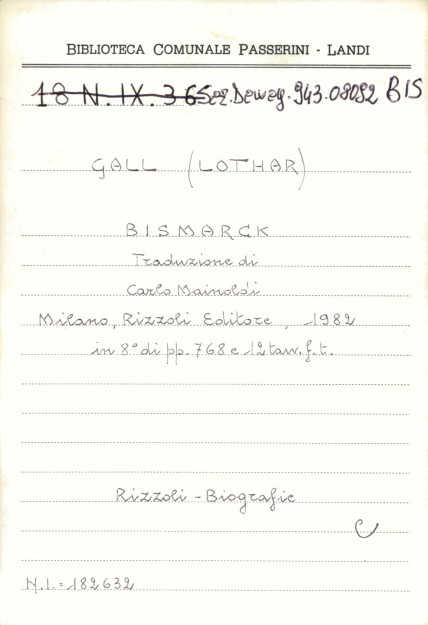 BIBLIOTECA COMUNALE PASSERINI - LANDI
18 N. IX. 365 Sez. Dewey. 943.08082 BIS
GALL (LOTHAR)
BISMARCK
Traduzione di
Carlo Mainoldi
Milano, Rizzoli Editore, 1982
in 8° di pp. 768 e 12 tav. f. t.
Rizzoli - Biografie
C
N.I. = 182632